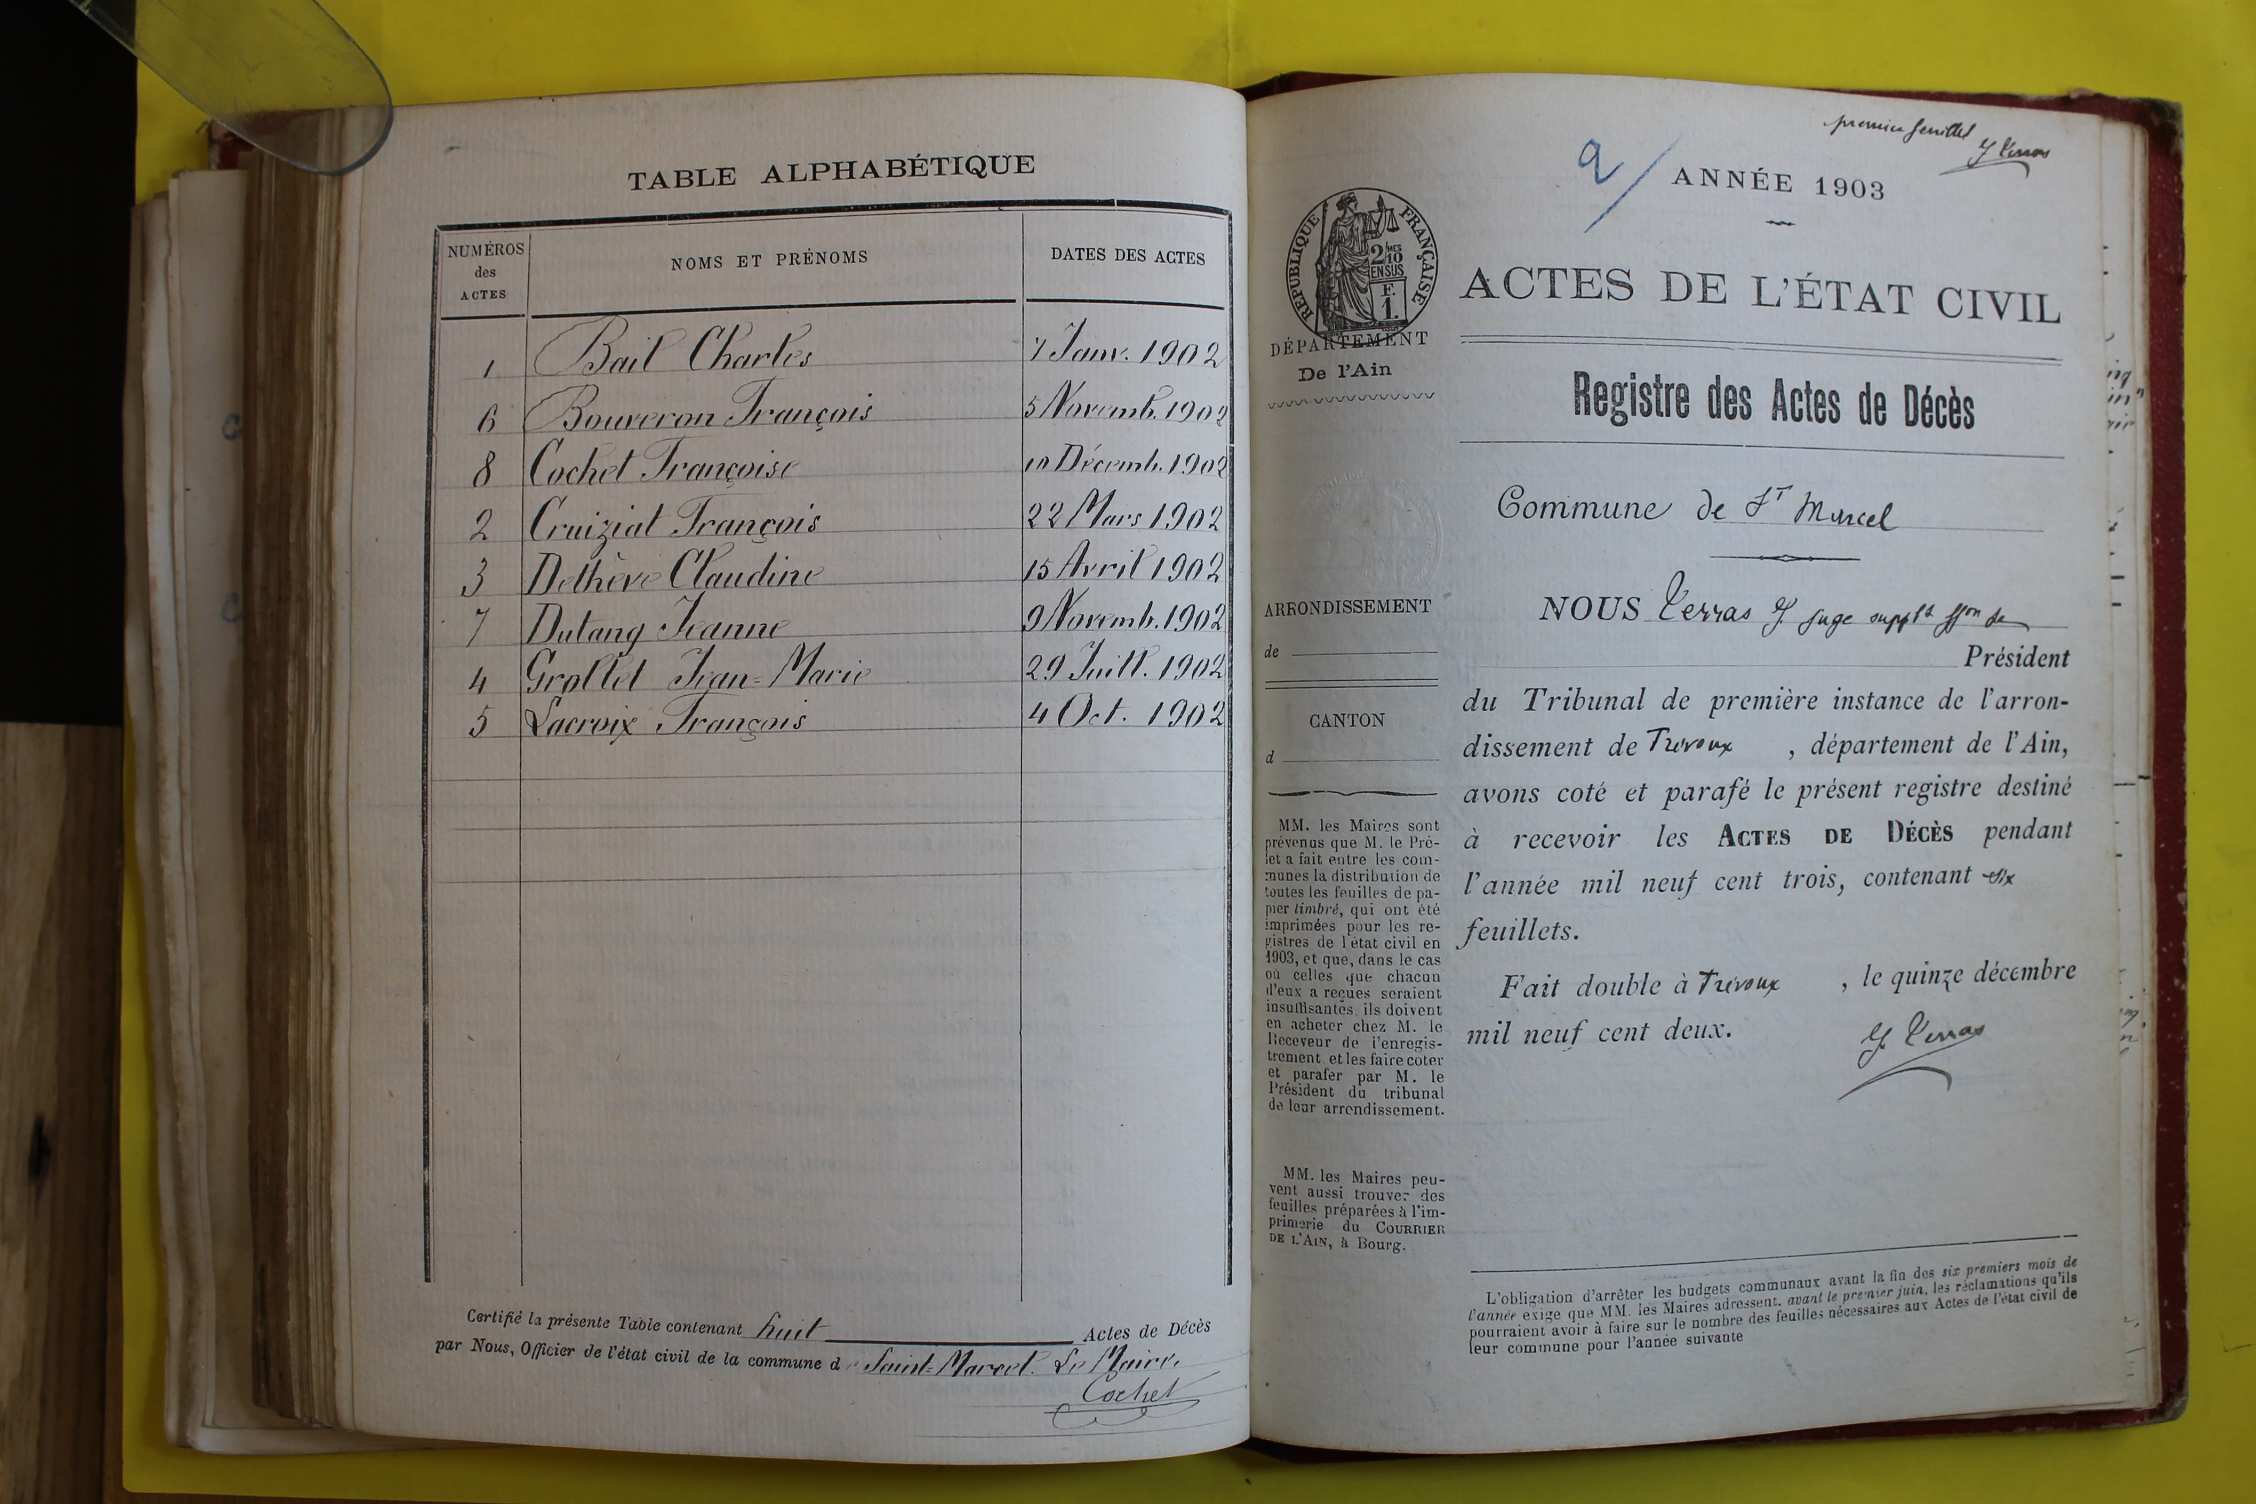 TABLE ALPHABÉTIQUE
NUMÉROS des ACTES NOMS ET PRÉNOMS DATES DES ACTES
1 Bail Charles 7 Janv. 1902
6 Bouveron François 5 Novemb. 1902
8 Cochet Françoise 10 Décemb. 1902
2 Cruiziat François 22 Mars 1902
3 Dethève Claudine 15 Avril 1902
7 Dutang Jeanne 9 Novemb. 1902
4 Grollet Jean=Marie 29 Juill. 1902
5 Lacroix François 4 Oct. 1902
Certifié la présente Table contenant huit Actes de Décès
par Nous, Officier de l'état civil de la commune de Saint=Marcel. Le Maire,
Cochet
premier feuillet
2
ANNÉE 1903
RÉPUBLIQUE FRANÇAISE
2/10MES
EN SUS
F.
1.
ACTES DE L'ÉTAT CIVIL
DÉPARTEMENT
De l'Ain
Registre des Actes de Décès
Commune de St Marcel
ARRONDISSEMENT
de
CANTON
d
NOUS juge suppt ffon de
Président
du Tribunal de première instance de l'arron-
dissement de Trévoux , département de l'Ain,
avons coté et parafé le présent registre destiné
à recevoir les ACTES DE DÉCÈS pendant
l'année mil neuf cent trois, contenant six
feuillets.
Fait double à Trévoux , le quinze décembre
mil neuf cent deux.
MM. les Maires sont
prévenus que M. le Pré-
fet a fait entre les com-
munes la distribution de
toutes les feuilles de pa-
pier timbré, qui ont été
imprimées pour les re-
gistres de l'état civil en
1903, et que, dans le cas
où celles que chacun
d'eux a reçues seraient
insuffisantes, ils doivent
en acheter chez M. le
Receveur de l'enregis-
trement et les faire coter
et parafer par M. le
Président du tribunal
de leur arrondissement.
MM. les Maires peu-
vent aussi trouver des
feuilles préparées à l'im-
primerie du COURRIER
DE L'AIN, à Bourg.
L'obligation d'arrêter les budgets communaux avant la fin des six premiers mois de
l'année exige que MM. les Maires adressent, avant le premier juin, les réclamations qu'ils
pourraient avoir à faire sur le nombre des feuilles nécessaires aux Actes de l'état civil de
leur commune pour l'année suivante